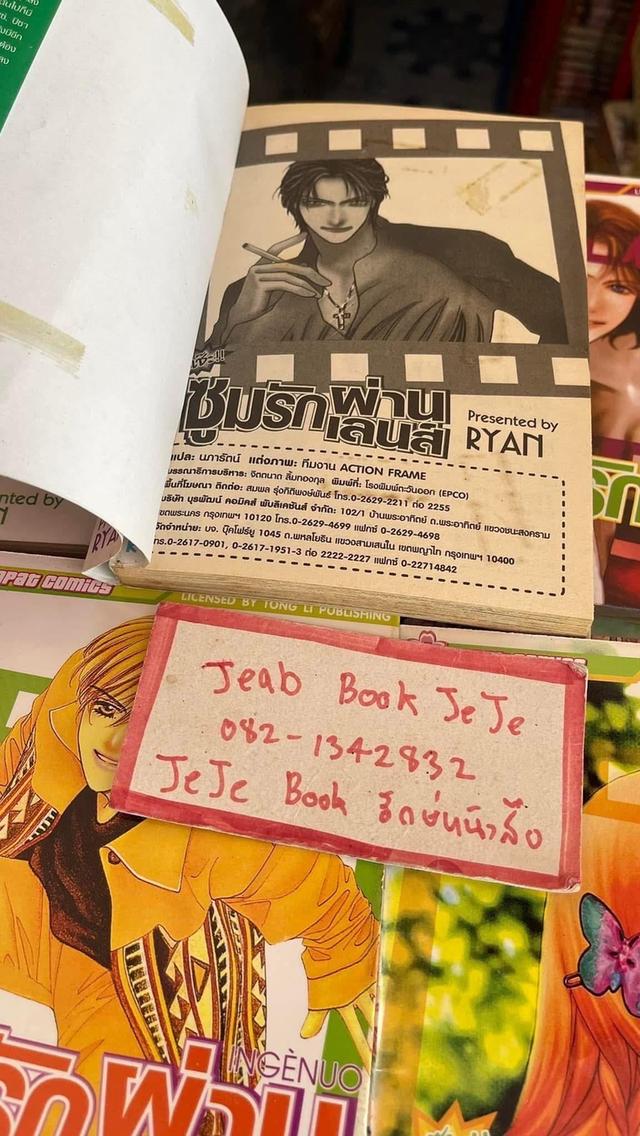 แชะ!!
ซูมรักผ่านเลนส์
Presented by
RYAN
แปล: นภารัตน์ แต่งภาพ: ทีมงาน ACTION FRAME
บรรณาธิการบริหาร: จิตตนาถ ลิ้มทองกุล พิมพ์ที่: โรงพิมพ์ตะวันออก (EPCO)
พื้นที่โฆษณา ติดต่อ: สมพล รุ่งกิติพงษ์พันธ์ โทร.0-2629-2211 ต่อ 2255
บริษัท บุรพัฒน์ คอมิคส์ พับลิเคชันส์ จำกัด: 102/1 บ้านพระอาทิตย์ ถ.พระอาทิตย์ แขวงชนะสงคราม
เขตพระนคร กรุงเทพฯ 10120 โทร. 0-2629-4699 แฟกซ์ 0-2629-4698
จัดจำหน่าย: บจ. บุ๊คโฟร์ยู 1045 ถ.พหลโยธิน แขวงสามเสนใน เขตพญาไท กรุงเทพฯ 10400
โทร.0-2617-0901, 0-2617-1951-3 ต่อ 2222-2227 แฟกซ์ 0-22714842
RYAN
pat comics
LICENSED BY TONG LI PUBLISHING
Jeab Book JeJe
082-1342832
JeJe Book
INGÈNUO
รักผ่าน